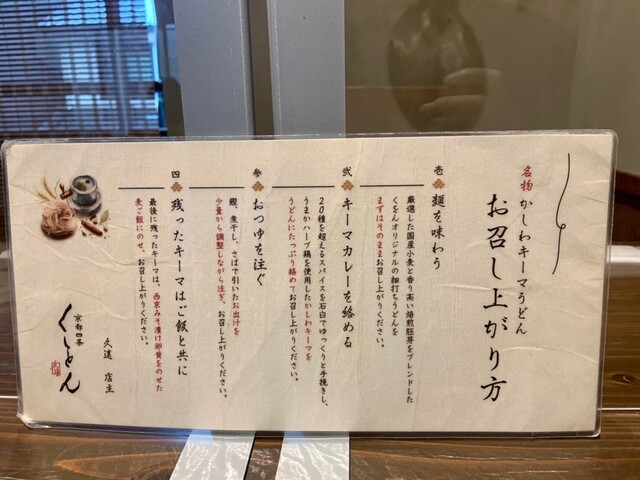 名物 かしわキーマうどん
お召し上がり方
壱
麺を味わう
厳選した国産小麦と香り高い焙煎胚芽をブレンドした
くをんオリジナルの細打ちうどんを
まずはそのままお召し上がりください。
弐
キーマカレーを絡める
20種を超えるスパイスを石臼でゆっくりと手挽きし、
うまかハーブ鶏を使用したかしわキーマを
うどんにたっぷり絡めてお召し上がりください。
参
おつゆを注ぐ
鰹、煮干し、さばで引いたお出汁を
少量から調整しながら注ぎ、お召し上がりください。
四
残ったキーマはご飯と共に
最後に残ったキーマは、西京みそ漬け卵黄をのせた
麦ご飯にのせ、お召し上がりください。
久遠 店主
京都四条
くをん